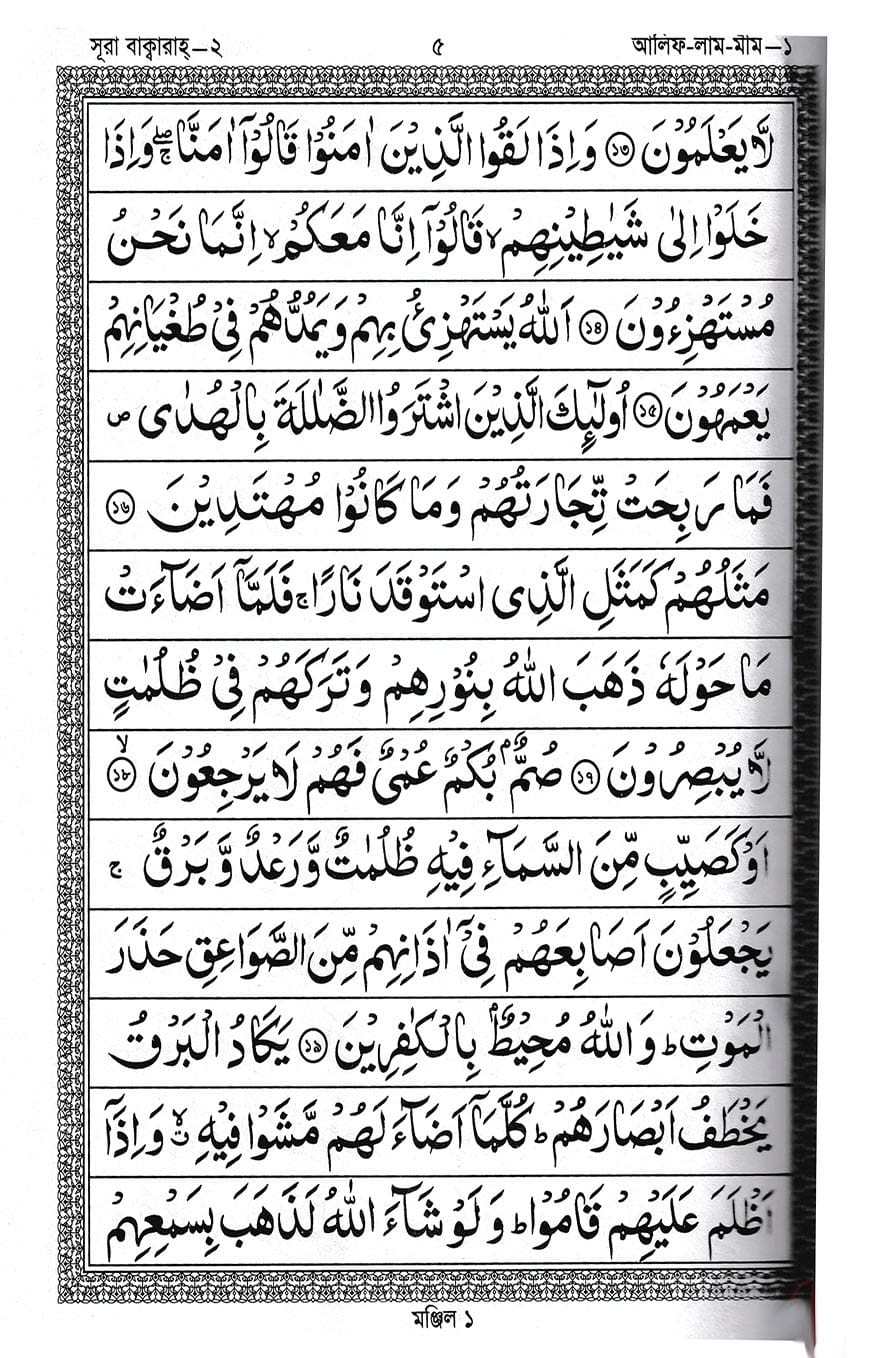 সূরা বাক্বারাহ্–২ ৫ আলিফ-লাম-মীম–১
لَّا يَعْلَمُوْنَ ⑬ وَاِذَا لَقُوا الَّذِيْنَ اٰمَنُوْا قَالُوْٓا اٰمَنَّا ۖۚ وَاِذَا
خَلَوْا اِلٰى شَيٰطِيْنِهِمْ ۙ قَالُوْٓا اِنَّا مَعَكُمْ ۙ اِنَّمَا نَحْنُ
مُسْتَهْزِءُوْنَ ⑭ اَللّٰهُ يَسْتَهْزِئُ بِهِمْ وَيَمُدُّهُمْ فِىْ طُغْيَانِهِمْ
يَعْمَهُوْنَ ⑮ اُولٰٓئِكَ الَّذِيْنَ اشْتَرَوُا الضَّلٰلَةَ بِالْهُدٰى ص
فَمَا رَبِحَتْ تِّجَارَتُهُمْ وَمَا كَانُوْا مُهْتَدِيْنَ ⑯
مَثَلُهُمْ كَمَثَلِ الَّذِى اسْتَوْقَدَ نَارًا ۚ فَلَمَّآ اَضَآءَتْ
مَا حَوْلَهٗ ذَهَبَ اللّٰهُ بِنُوْرِهِمْ وَتَرَكَهُمْ فِىْ ظُلُمٰتٍ
لَّا يُبْصِرُوْنَ ⑰ صُمٌّۢ بُكْمٌ عُمْىٌ فَهُمْ لَا يَرْجِعُوْنَ ⑱ ۙ
اَوْ كَصَيِّبٍ مِّنَ السَّمَآءِ فِيْهِ ظُلُمٰتٌ وَّرَعْدٌ وَّبَرْقٌ ۚ
يَجْعَلُوْنَ اَصَابِعَهُمْ فِىْٓ اٰذَانِهِمْ مِّنَ الصَّوَاعِقِ حَذَرَ
الْمَوْتِ ؕ وَاللّٰهُ مُحِيْطٌۢ بِالْكٰفِرِيْنَ ⑲ يَكَادُ الْبَرْقُ
يَخْطَفُ اَبْصَارَهُمْ ؕ كُلَّمَآ اَضَآءَ لَهُمْ مَّشَوْا فِيْهِ ۙ وَاِذَآ
اَظْلَمَ عَلَيْهِمْ قَامُوْا ؕ وَلَوْ شَآءَ اللّٰهُ لَذَهَبَ بِسَمْعِهِمْ
মঞ্জিল ১